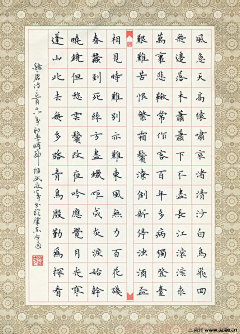 風急天高猿嘯哀渚清沙白鳥飛回
無邊落木蕭蕭下不盡長江滾滾來
萬里悲秋常作客百年多病獨登臺
艱難苦恨繁霜鬢潦倒新停濁酒杯
相見時難別亦難東風無力百花殘
春蠶到死絲方盡蠟炬成灰淚始乾
曉鏡但愁雲鬢改夜吟應覺月光寒
蓬山此去無多路青鳥殷勤為探看